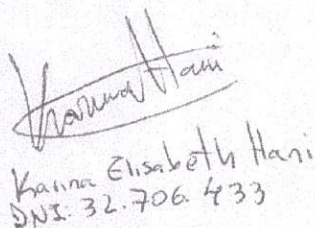 Karina Hani
Karina Elisabeth Hani
DNI: 32.706.433